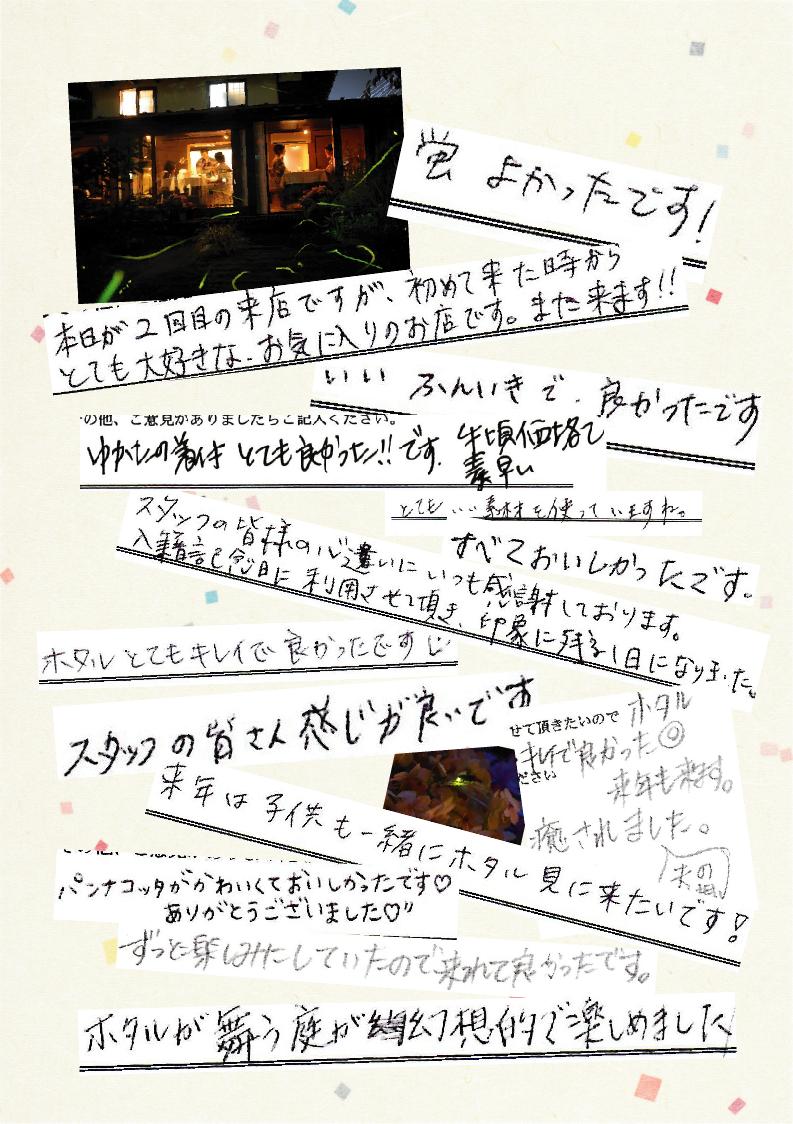 蛍 よかったです!
本日が2回目の来店ですが、初めて来た時から
とても大好きな、お気に入りのお店です。また来ます!!
いい ふんいきで、良かったです
の他、ご意見がありましたらご記入ください。
ゆかたの着付 とても良かった!!です。手頃価格で
素早い
とても いい素材を使っていますね。
すべておいしかったです。
スタッフの皆様の心遣いにいつも感謝しております。
入籍記念日に利用させて頂き、印象に残る1日になりました。
ホタルとてもキレイで良かったです
スタッフの皆さん感じが良いです
せて頂きたいので
ださい
ホタル
キレイで良かった◎
来年も来ます。
癒されました。
来年は子供も一緒にホタル見に来たいです!
パンナコッタがかわいくておいしかったです♡
ありがとうございました♡"
ずっと楽しみにしていたので来れて良かったです。
ホタルが舞う庭が幻想的で楽しめました